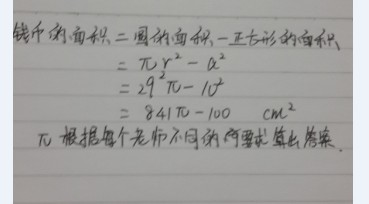 钱币的面积=圆的面积-正方形的面积
=πr²-a²
=29²π-10²
=841π-100 cm²
π根据每个老师不同的所要求算出答案.